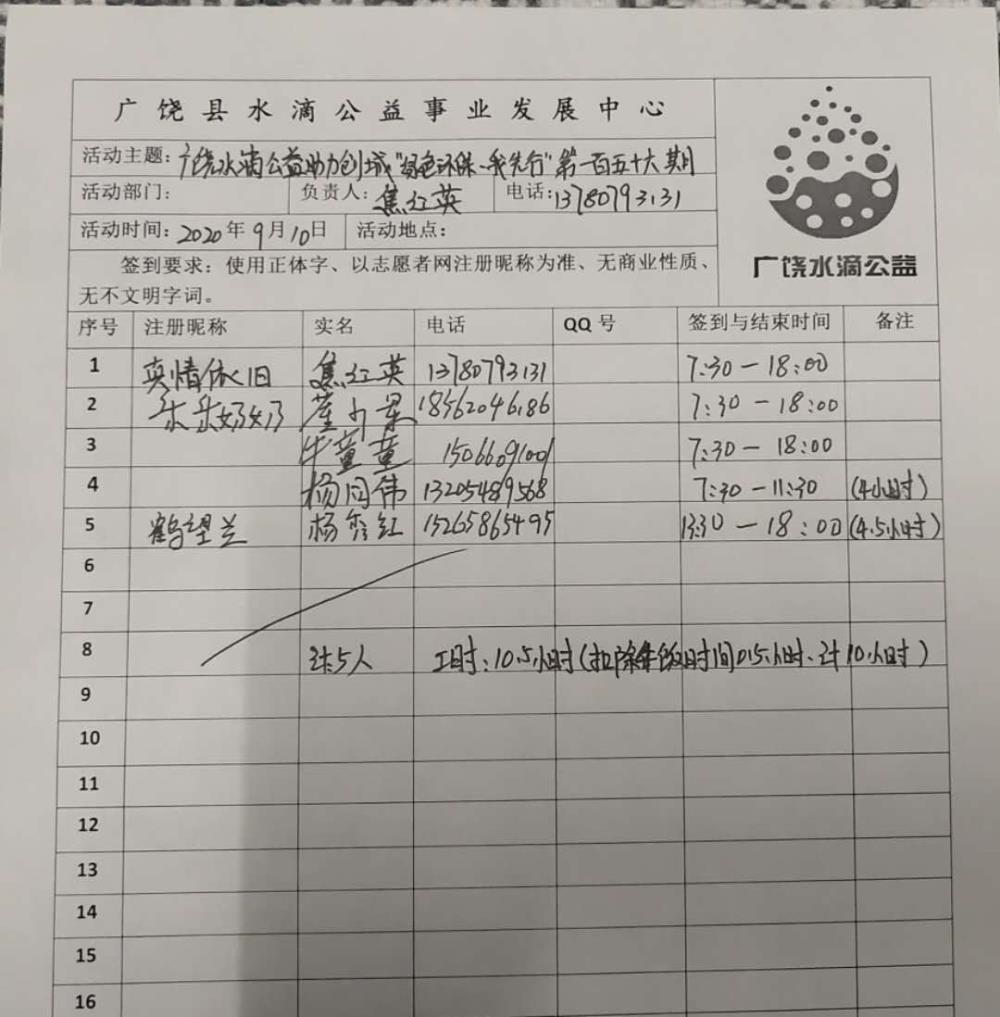 广饶县水滴公益事业发展中心
活动主题：广饶水滴公益助力创城“绿色环保、我先行”第一百五十六期
活动部门： 负责人：焦红英 电话：13780793131
活动时间：2020年9月10日 活动地点：
签到要求：使用正体字、以志愿者网注册昵称为准、无商业性质、
无不文明字词。
广饶水滴公益
序号 注册昵称 实名 电话 QQ号 签到与结束时间 备注
1 真情依旧 焦红英 13780793131 7:30－18:00
2 乐乐奶奶 18562046186 7:30－18:00
3 牛童童 15066091001 7:30－18:00
4 杨同伟 13205489568 7:30－11:30 (4小时)
5 鹤望兰 杨秀红 15265865495 13:30－18:00 (4.5小时)
6
7
8 计5人 工时：10.5小时(扣除午饭时间0.5小时、计10小时)
9
10
11
12
13
14
15
16